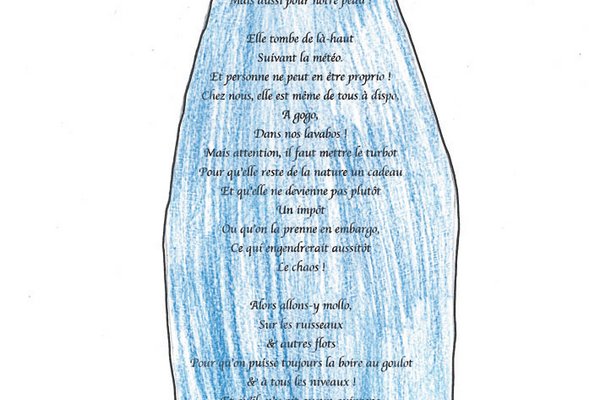 Mais aussi pour notre peau !
Elle tombe de là-haut
Suivant la météo.
Et personne ne peut en être proprio !
Chez nous, elle est même de tous à dispo,
A gogo,
Dans nos lavabos !
Mais attention, il faut mettre le turbot
Pour qu'elle reste de la nature un cadeau
Et qu'elle ne devienne pas plutôt
Un impôt
Ou qu'on la prenne en embargo,
Ce qui engendrerait aussitôt
Le chaos !
Alors allons-y mollo,
Sur les ruisseaux
& autres flots
Pour qu'on puisse toujours la boire au goulot
& à tous les niveaux !